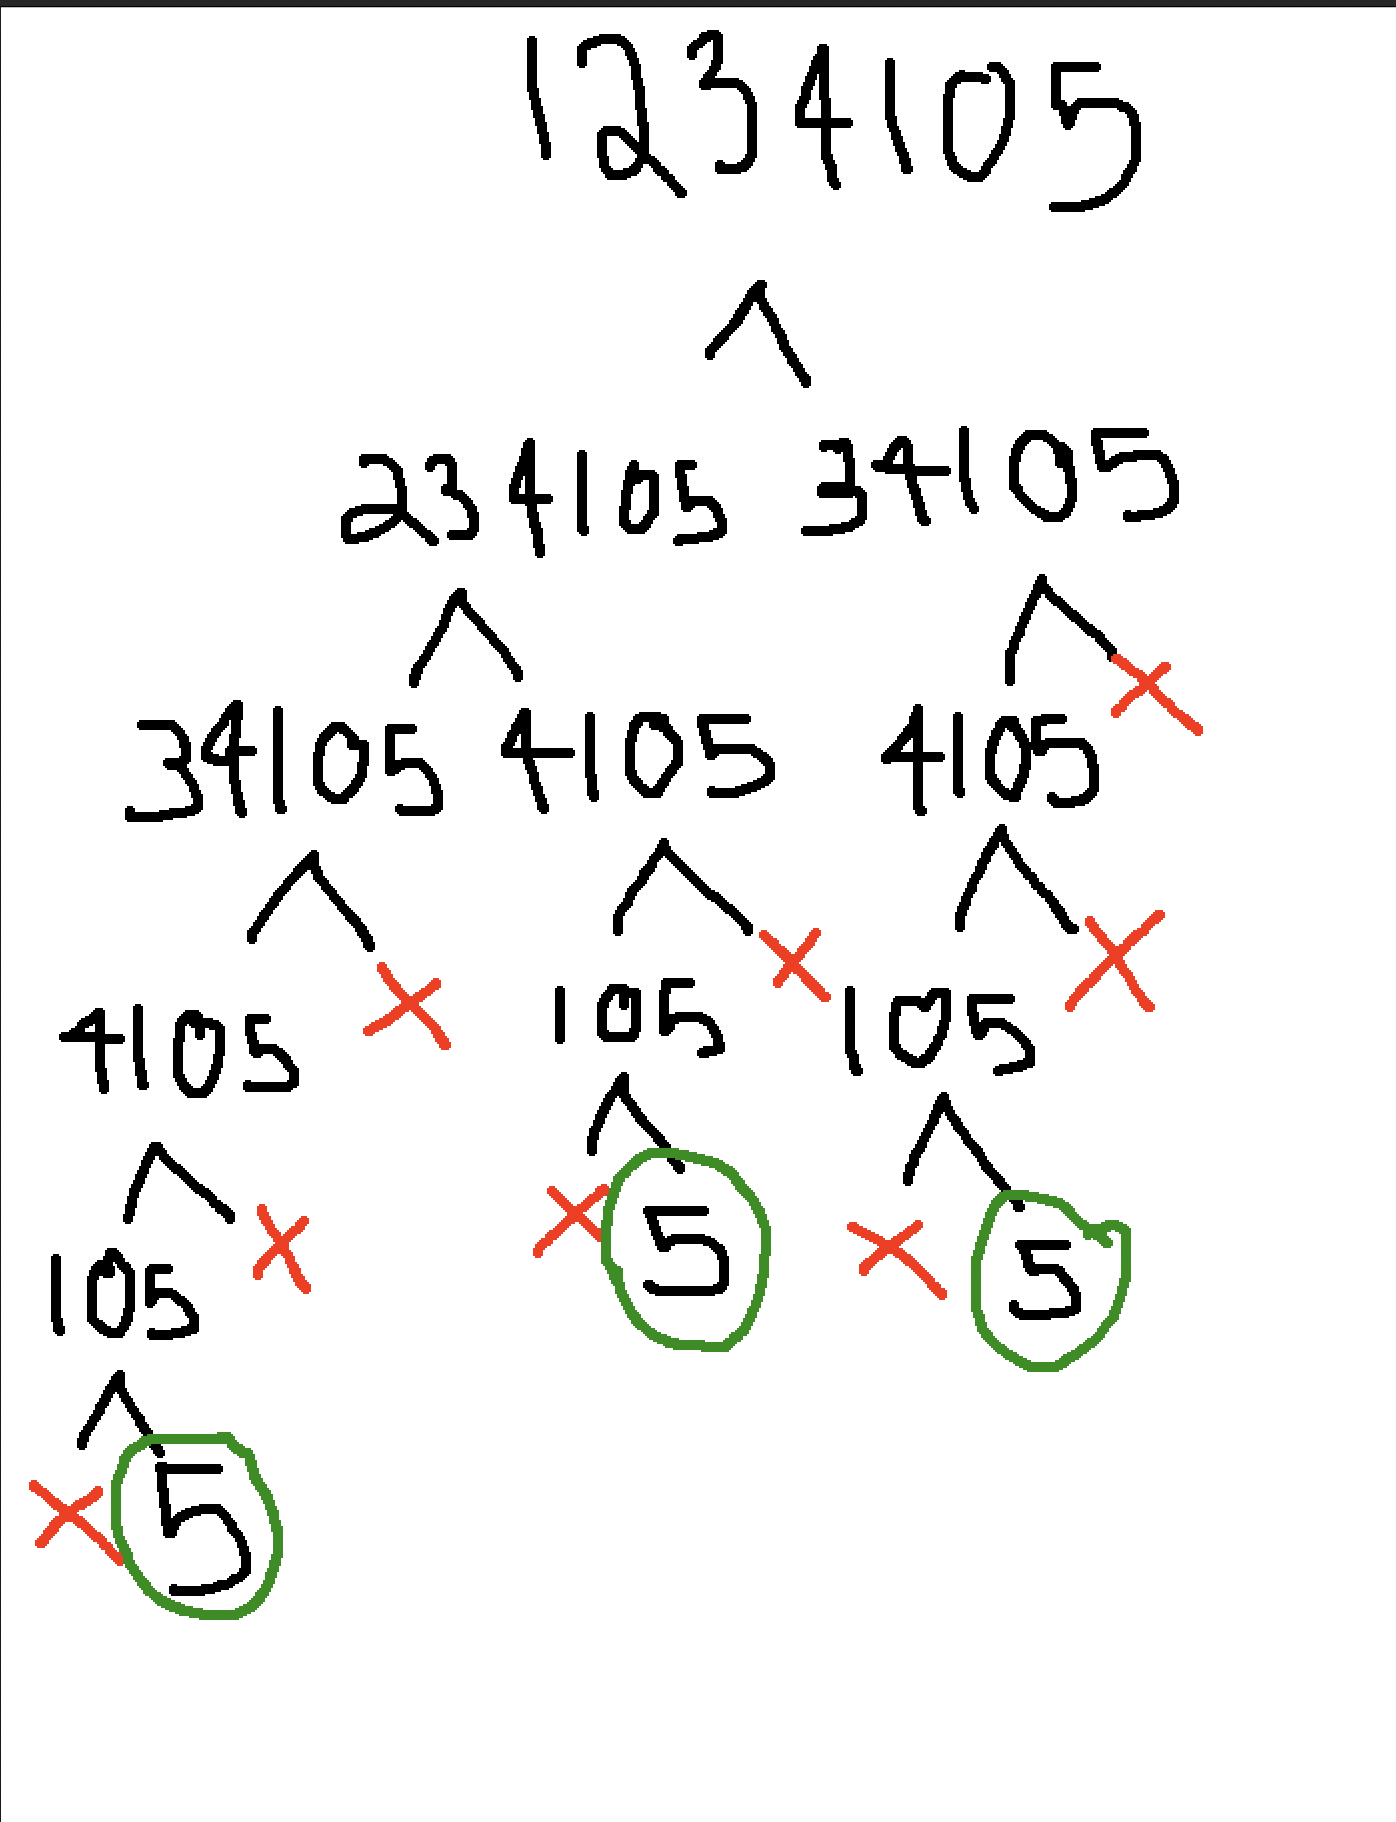 1234105
234105 34105
34105 4105 4105
4105 105 105
105 5 5
5